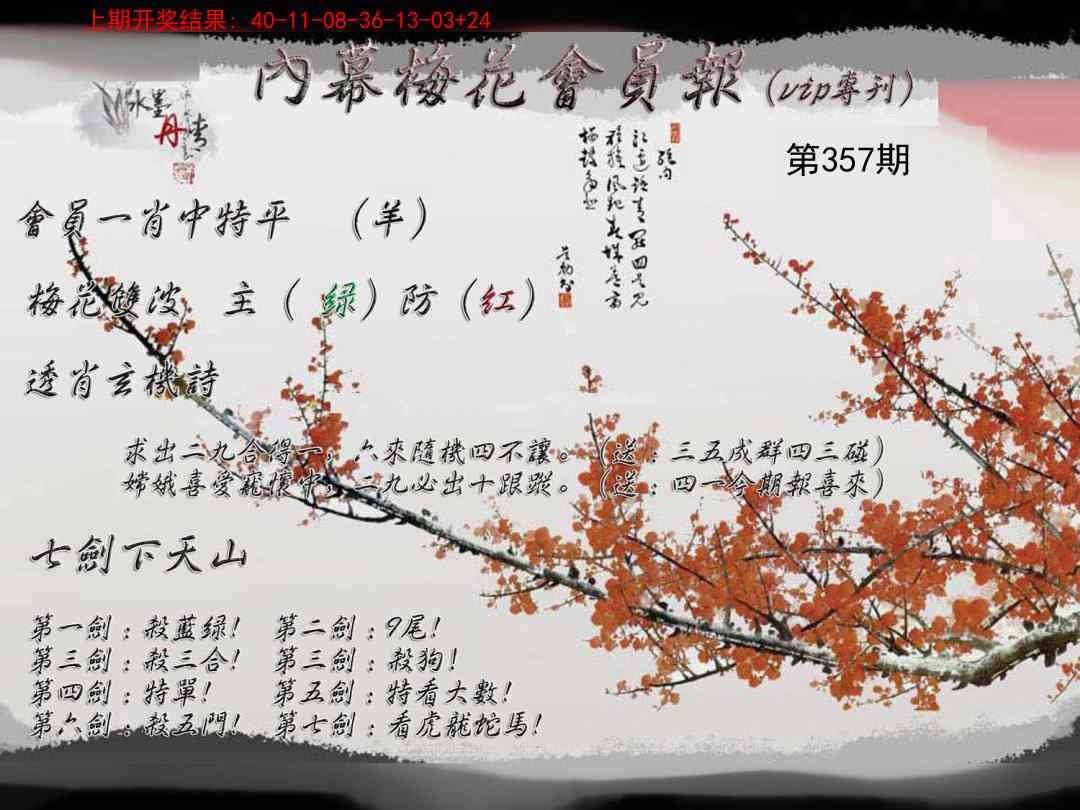 上期开奖结果：40-11-08-36-13-03+24
內幕梅花會員報（vip專刊）
水墨
丹青
第357期
會員一肖中特平 （羊）
梅花雙波 主（绿）防（红）
透肖玄機詩
求出二九合得一，六來隨機四不讓。（送：三五成群四三碰）
嫦娥喜愛寵懷中，二九必出十跟蹤。（送：四一今期報喜來）
七劍下天山
第一劍：殺藍绿！ 第二劍：9尾！
第三劍：殺三合！ 第三劍：殺狗！
第四劍：特單！ 第五劍：特看大數！
第六劍：殺五門！ 第七劍：看虎龍蛇馬！